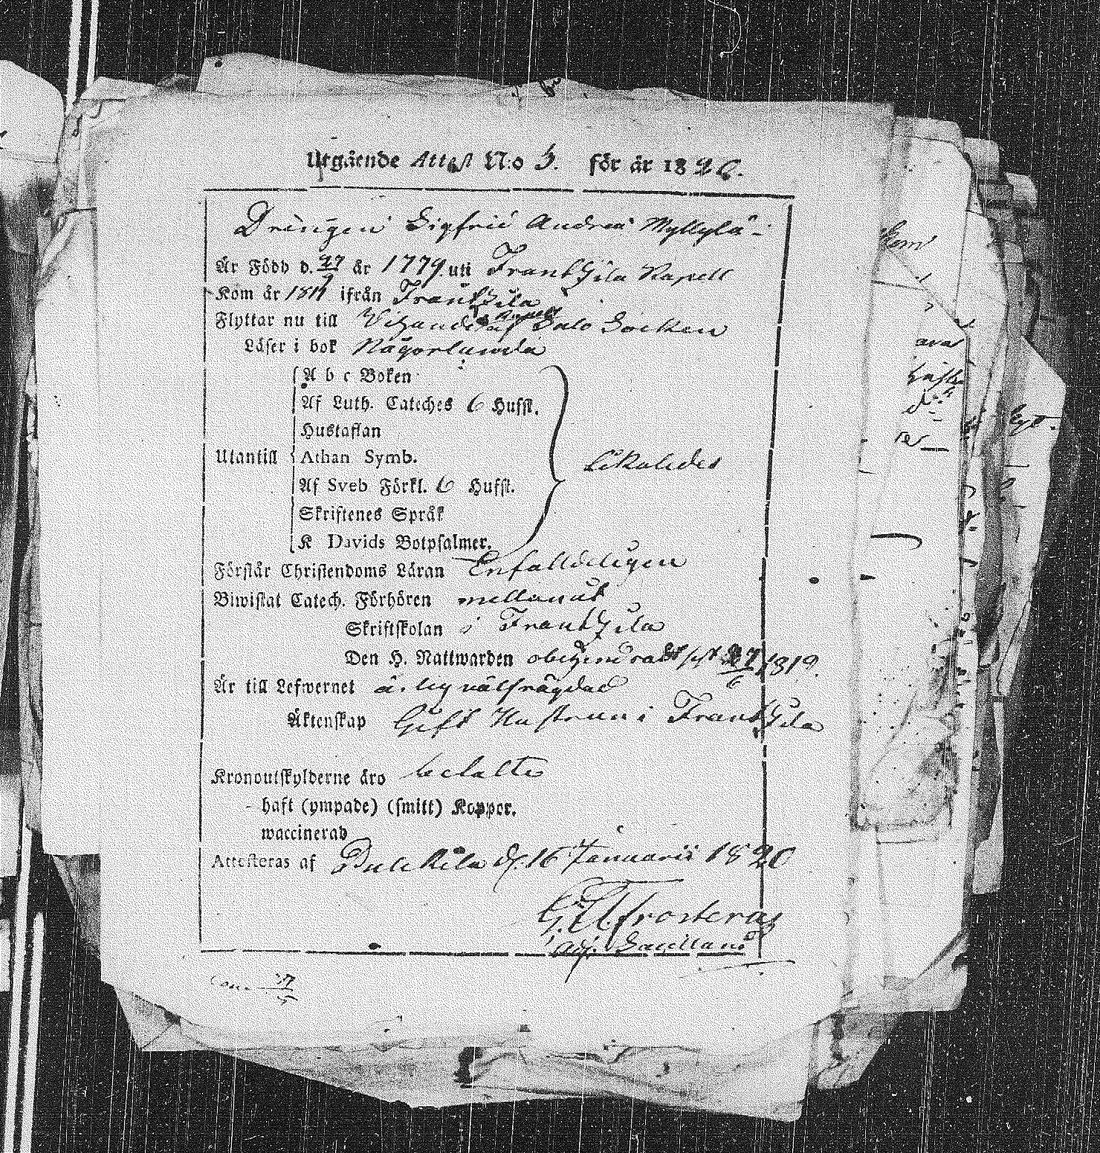 Utgående Attest No 3. för år 1820.
Drengen Sigfrid Andreä Myllylä
Är Född d. 27/9 år 1779 uti Frantzila Kapell
Kom år 1817 ifrån Frantzila
Flyttar nu till Vihanda Kapell af Salo Socken
Läser i bok Någorlunda
A b c Boken
Af Luth. Cateches 6 Hufst.
Hustaflan
Utantill Athan Symb. Likaledes
Af Sveb Förkl. 6 Hufst.
Skriftenes Språk
K Davids Botpsalmer.
Förstår Christendoms Läran Enfaldeligen
Biwistat Catech. Förhören
Skriftskolan i Frantzila
Den H. Nattwarden obehindradt sist 1819.
Är till Lefwernet ärlig välfrägdad
Äktenskap Gift Hustrun i Frantzila
Kronoutskylderne äro betalte
- haft (ympade) (smitt) Koppor.
waccinerad
Attesteras af Pulkila d. 16 Januarii 1820
Frosterus
Adj.